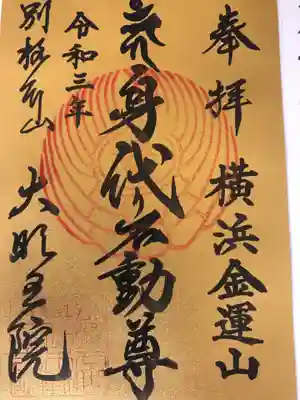 奉拝 横浜金運山
身代り不動尊
令和三年
別格本山 大明王院